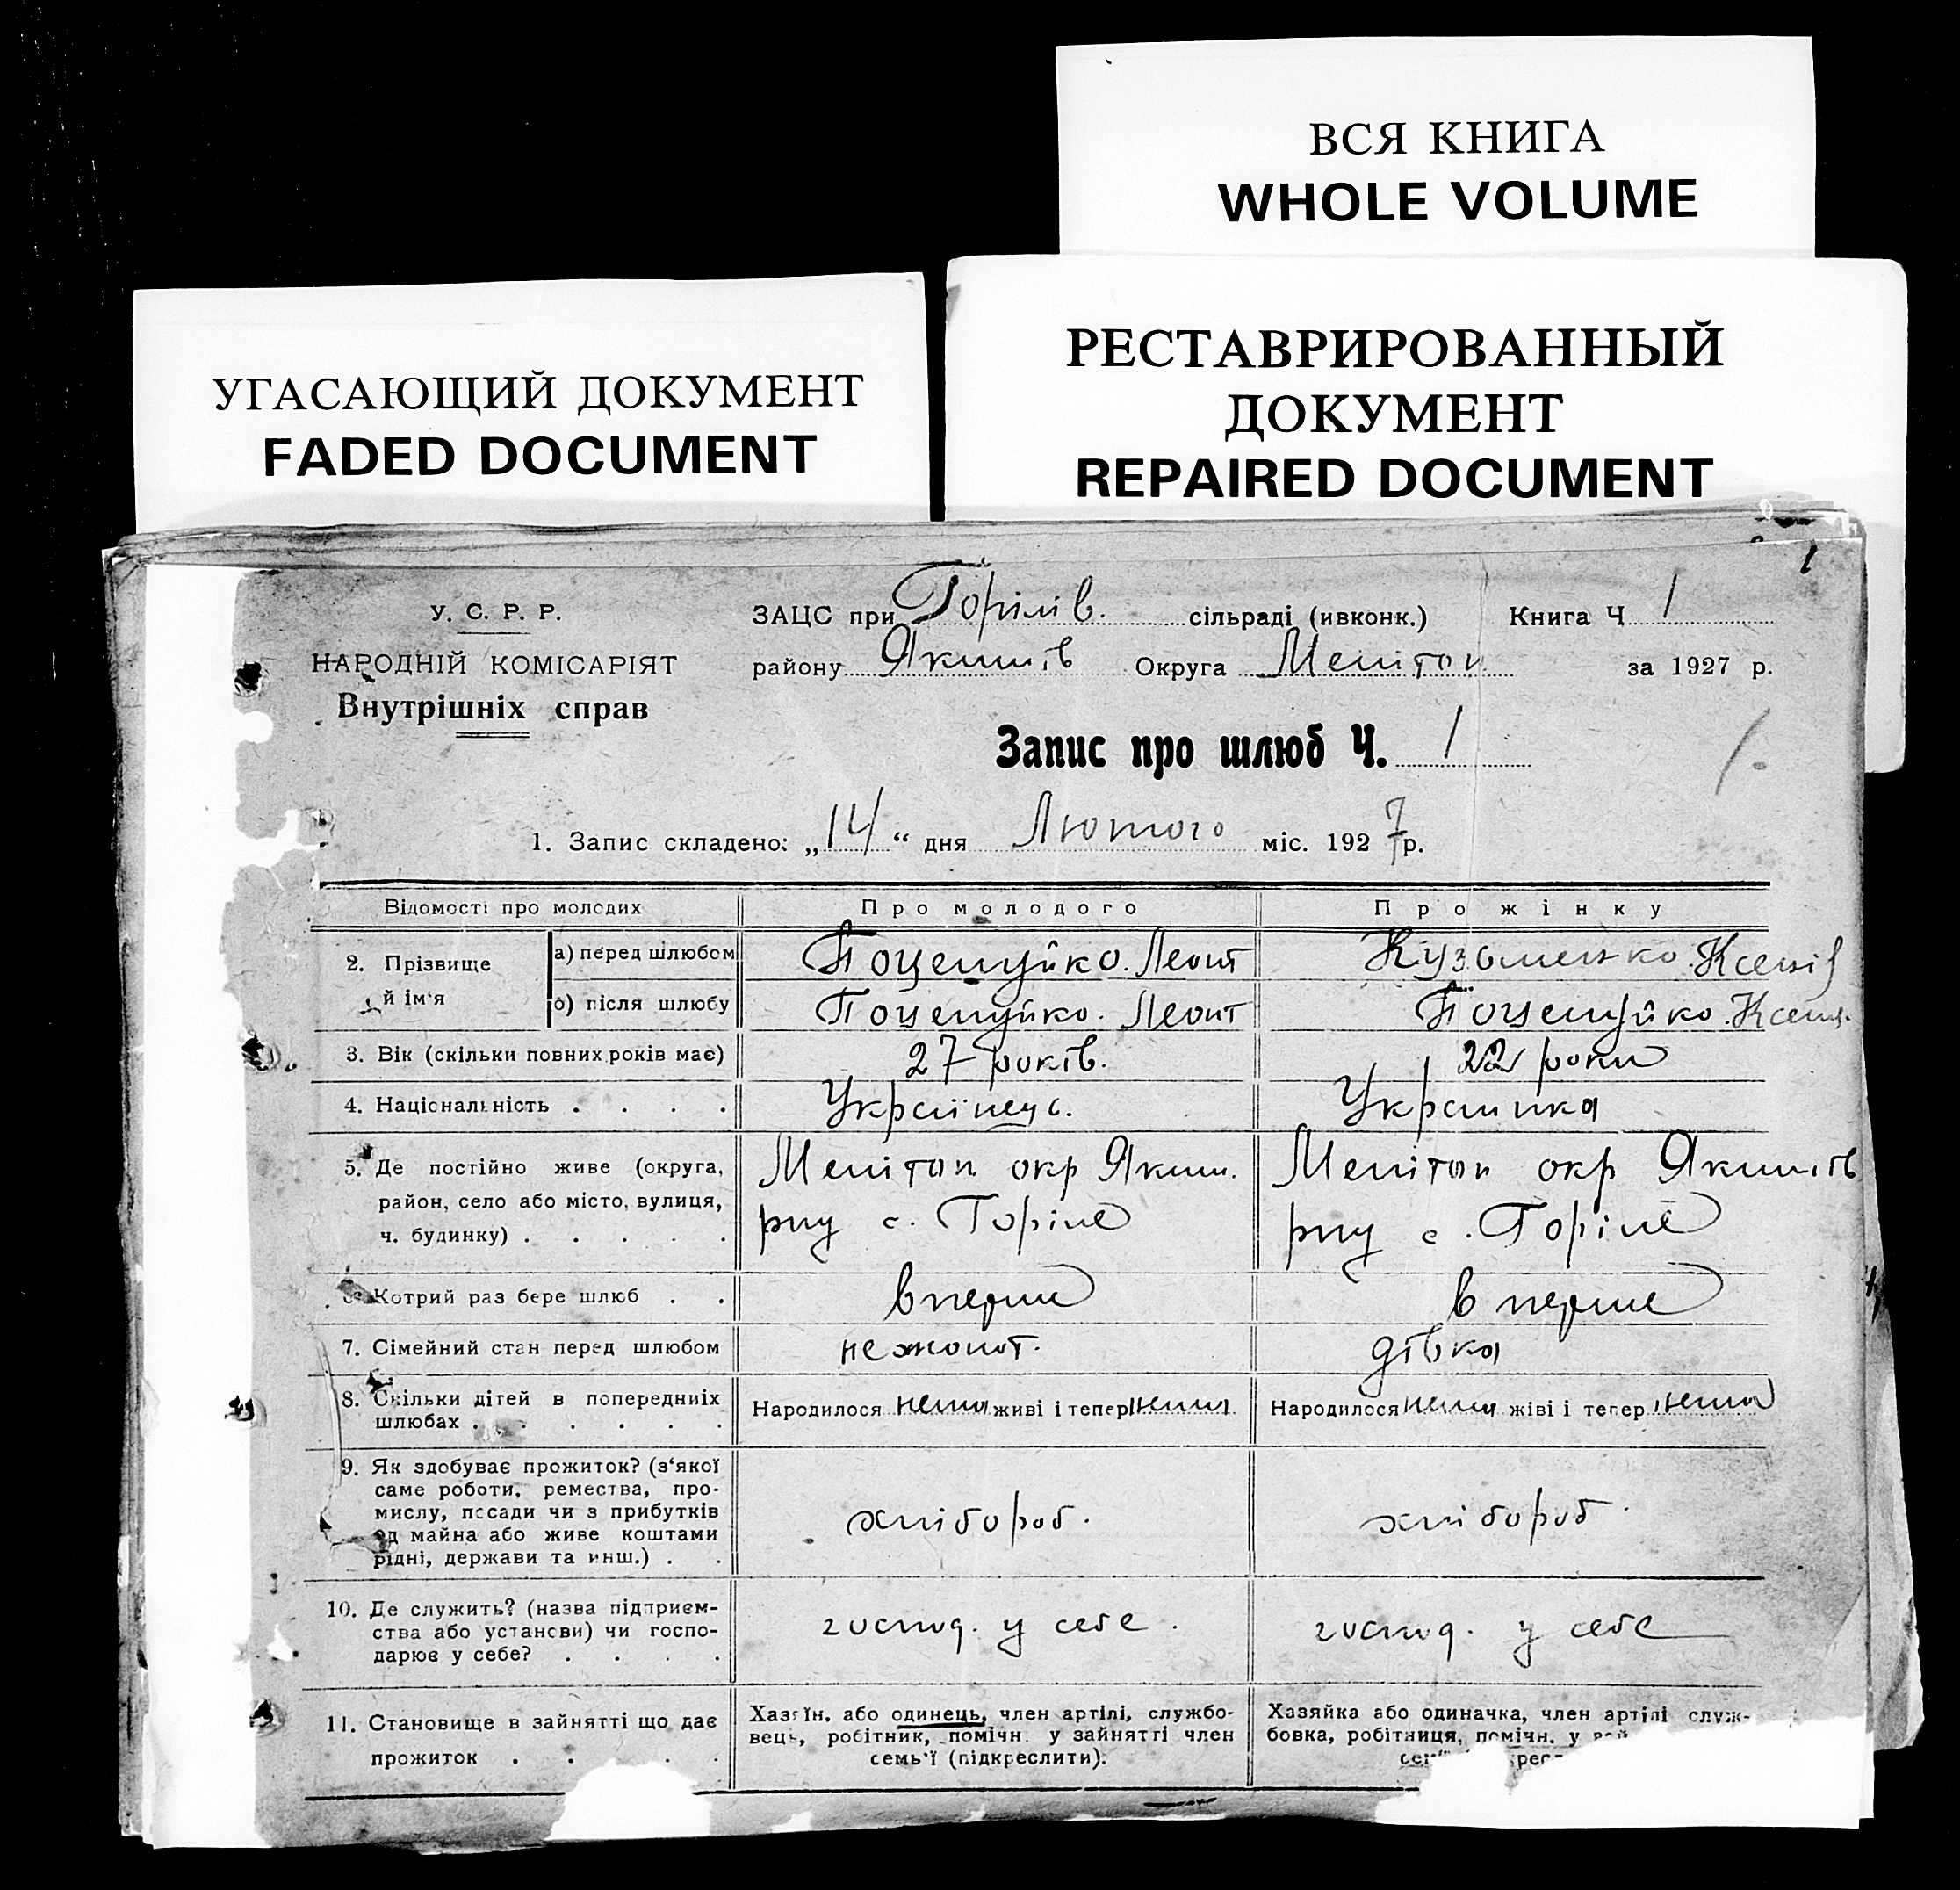 ВСЯ КНИГА
WHOLE VOLUME
УГАСАЮЩИЙ ДОКУМЕНТ
FADED DOCUMENT
РЕСТАВРИРОВАННЫЙ
ДОКУМЕНТ
REPAIRED DOCUMENT
1
У. С. Р. Р.
НАРОДНІЙ КОМІСАРІЯТ
Внутрішніх справ
ЗАЦС при Горілів. сільраді (ивконк.) Книга Ч 1
району Якимів Округа Мелітоп за 1927 р.
Запис про шлюб Ч. 1
1.
1. Запис складено: „14“ дня Лютого міс. 1927 р.
Відомості про молодих Про молодого Про жінку
2. Прізвище й ім‘я
а) перед шлюбом Поцелуйко. Леонт Кузьменко. Ксенія
б) після шлюбу Поцелуйко. Леонт Поцелуйко. Ксенія
3. Вік (скільки повних років має) 27 років. 22 роки
4. Національність . . . . Українець. Украинка
5. Де постійно живе (округа, Мелітоп окр Яким. Мелітоп окр Якимів
район, село або місто, вулиця, рну с. Горіле рну с. Горіле
ч. будинку) . . . . .
6. Котрий раз бере шлюб . . вперше вперше
7. Сімейний стан перед шлюбом нежонат. дівка
8. Скільки дітей в попередніх Народилося нема живі і тепер нема Народилося нема жіві і тепер нема
шлюбах . . . . . .
9. Як здобуває прожиток? (з‘якої
саме роботи, ремества, про-
мислу, посади чи з прибутків хлібороб. хлібороб.
од майна або живе коштами
рідні, держави та инш.) . .
10. Де служить? (назва підприєм-
ства або установи) чи госпо- господ. у себе. господ. у себе
дарює у себе? . . . .
11. Становище в зайнятті що дає
прожиток . . . .
Хазяїн, або одинець, член артілі, службо-
вець, робітник, помічн. у зайнятті член
семь‘ї (підкреслити).
Хазяйка або одиначка, член артілі служ-
бовка, робітниця, помічн. у